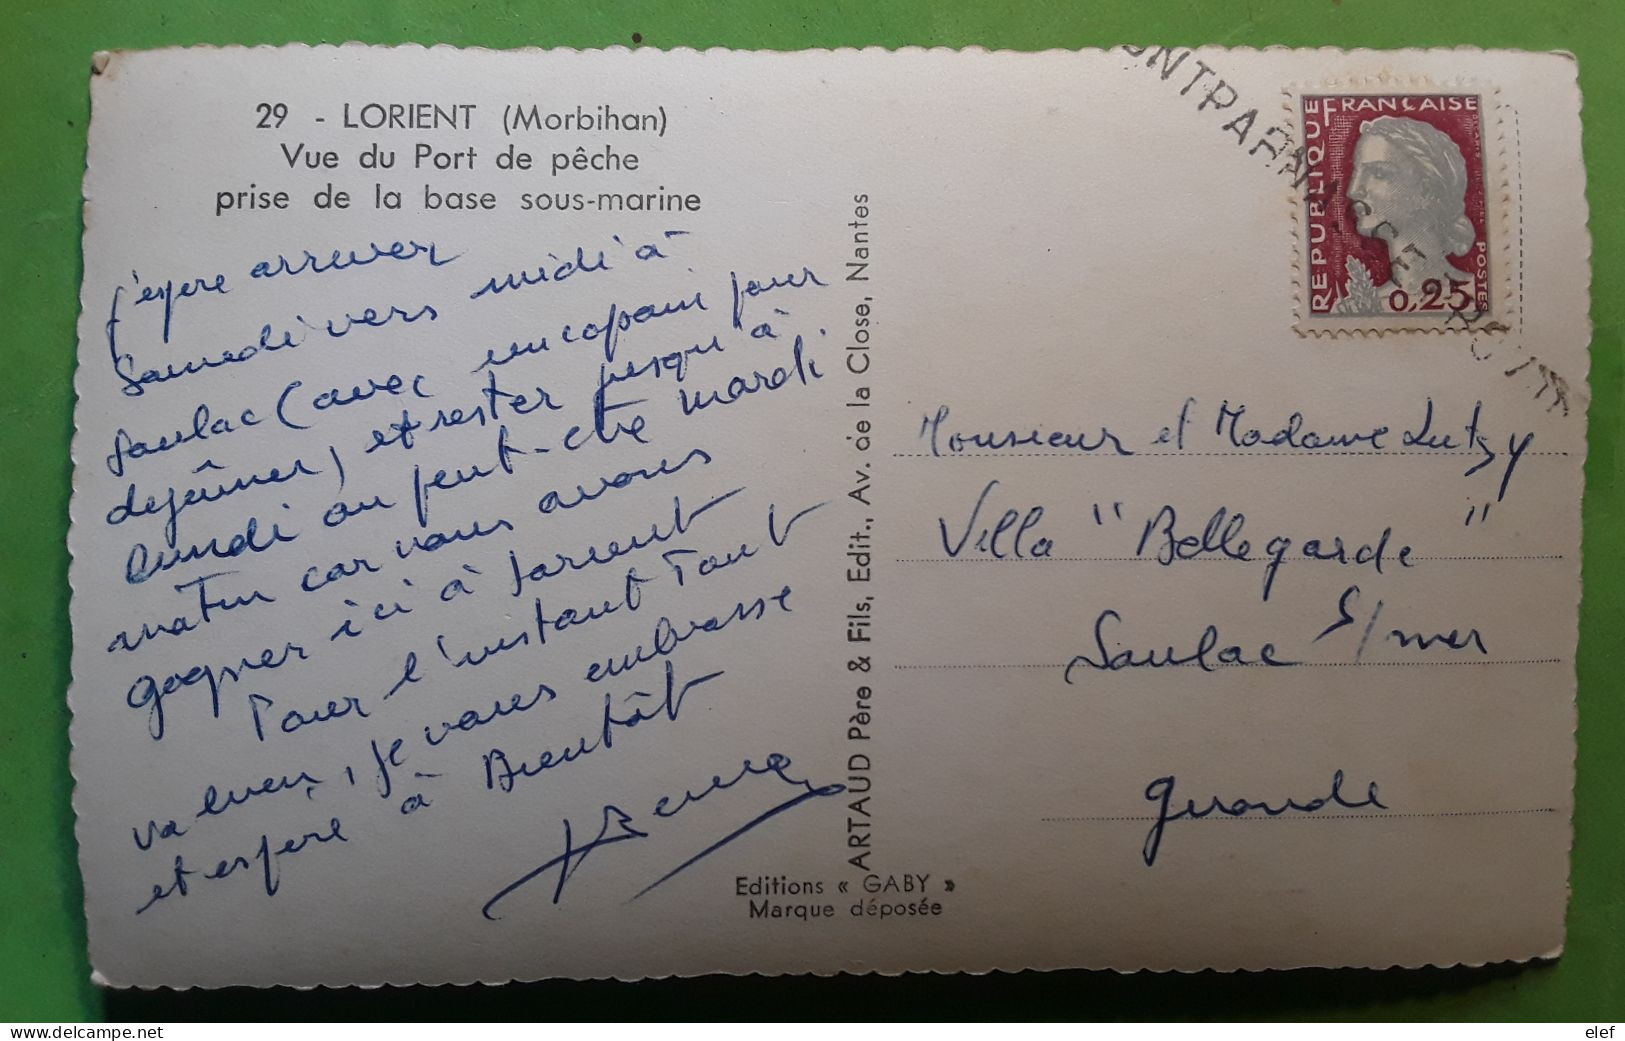 29 - LORIENT (Morbihan)
Vue du Port de pêche
prise de la base sous-marine
j'espere arriver
Samedi vers midi à
Soulac (avec un copain pour
dejeûner) et rester jusqu'à
lundi ou peut-être mardi
matin car nous avons
gagner ici à
Pour l'instant Tout
va bien, je vous embrasse
et espere à Bientôt
ARTAUD Père & Fils, Edit., Av. de la Close, Nantes
Editions « GABY »
Marque déposée
RÉPUBLIQUE
FRANÇAISE
POSTES
0,25
Monsieur et Madame Lutzy
Villa "Bellegarde"
Soulac S/mer
Gironde
elef